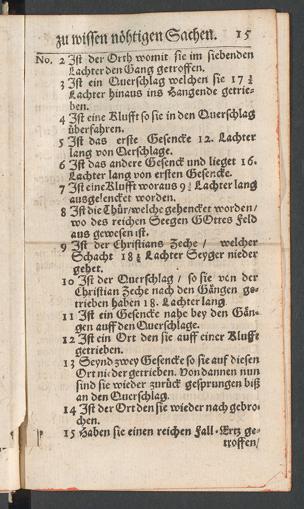 zu wissen nöhtigen Sachen. 15
No. 2 Ist der Orth womit sie im siebenden
Lachter den Gang getroffen.
3 Ist ein Querschlag welchen sie 17 ½
Lachter hinaus ins Hangende getrie-
ben.
4 Ist eine Klufft so sie in den Querschlag
überfahren.
5 Ist das erste Gesencke 12. Lachter
lang von Qerschlage.
6 Ist das andere Gesenck und lieget 16.
Lachter lang von ersten Gesencke.
7 Ist eine Klufft woraus 9 ½ Lachter lang
ausgelencket worden.
8 Ist die Thür/ welche gehencket worden/
wo des reichen Seegen GOttes Feld
aus gewesen ist.
9 Ist der Christians Zeche / welcher
Schacht 18 ½ Lachter Seyger nieder
gehet.
10 Ist der Querschlag / so sie von der
Christian Zeche nach den Gängen ge-
trieben haben 18. Lachter lang.
11 Ist ein Gesencke nahe bey den Gän-
gen auff den Querschlage.
12 Ist ein Ort den sie auff einer Klufft
getrieben.
13 Seynd zwey Gesencke so sie auf diesen
Ort nieder getrieben. Von dannen nun
sind sie wieder zurück gesprungen biß
an den Querschlag.
14 Ist der Ort den sie wieder nach gebro-
chen.
15 Haben sie einen reichen Fall-Ertz ge-
troffen/